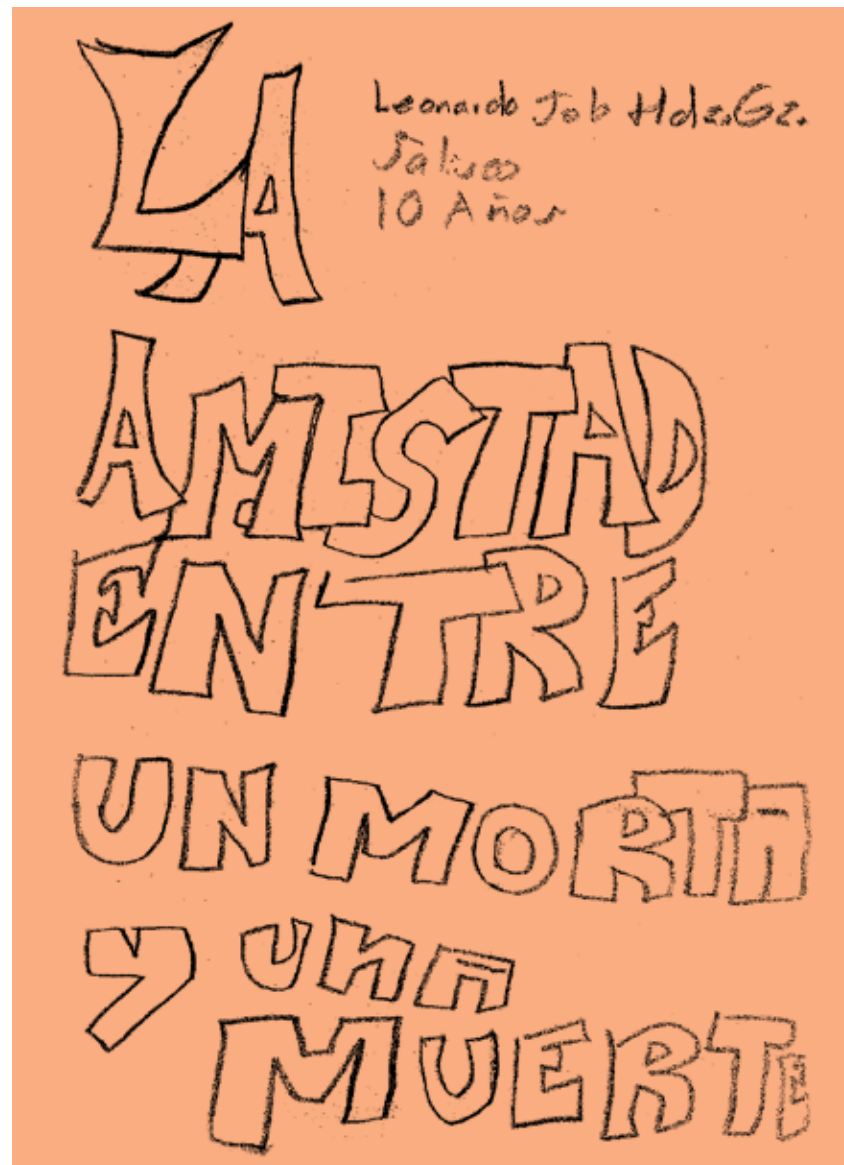 LA
Leonardo Job Hdz.Gz.
Jalisco
10 Años
AMISTAD
ENTRE
UN MORTA
Y UNA
MUERTE